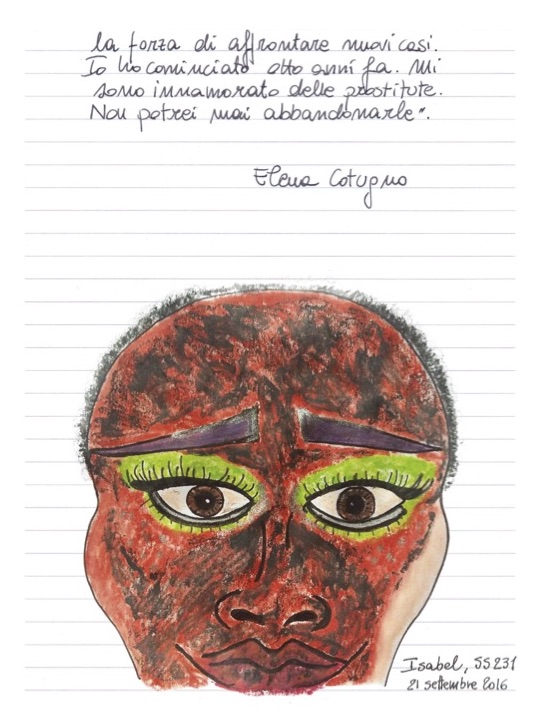 la forza di affrontare nuovi casi.
Io ho cominciato otto anni fa. Mi
sono innamorato delle prostitute.
Non potrei mai abbandonarle".
Elena Cotugno
Isabel, SS231
21 settembre 2016